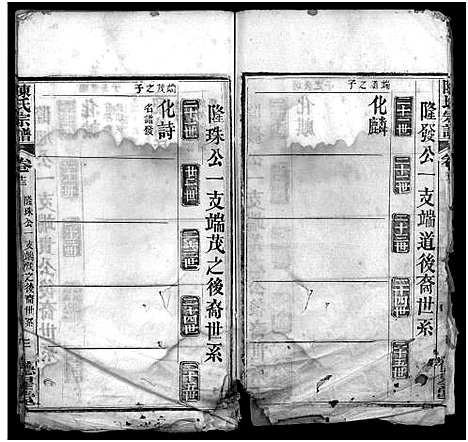 陳氏宗譜
卷
隆發公一支端道後裔世系
二十一世
二十二世
二十三世
二十四世
二十五世
端道之子
化麟
隆珠公一支端茂之後裔世系
二十一世
廿二世
二十三世
二十四世
二十五世
端茂之子
化詩
名譜發
陳氏宗譜
卷
隆珠公一支端茂之後裔世系